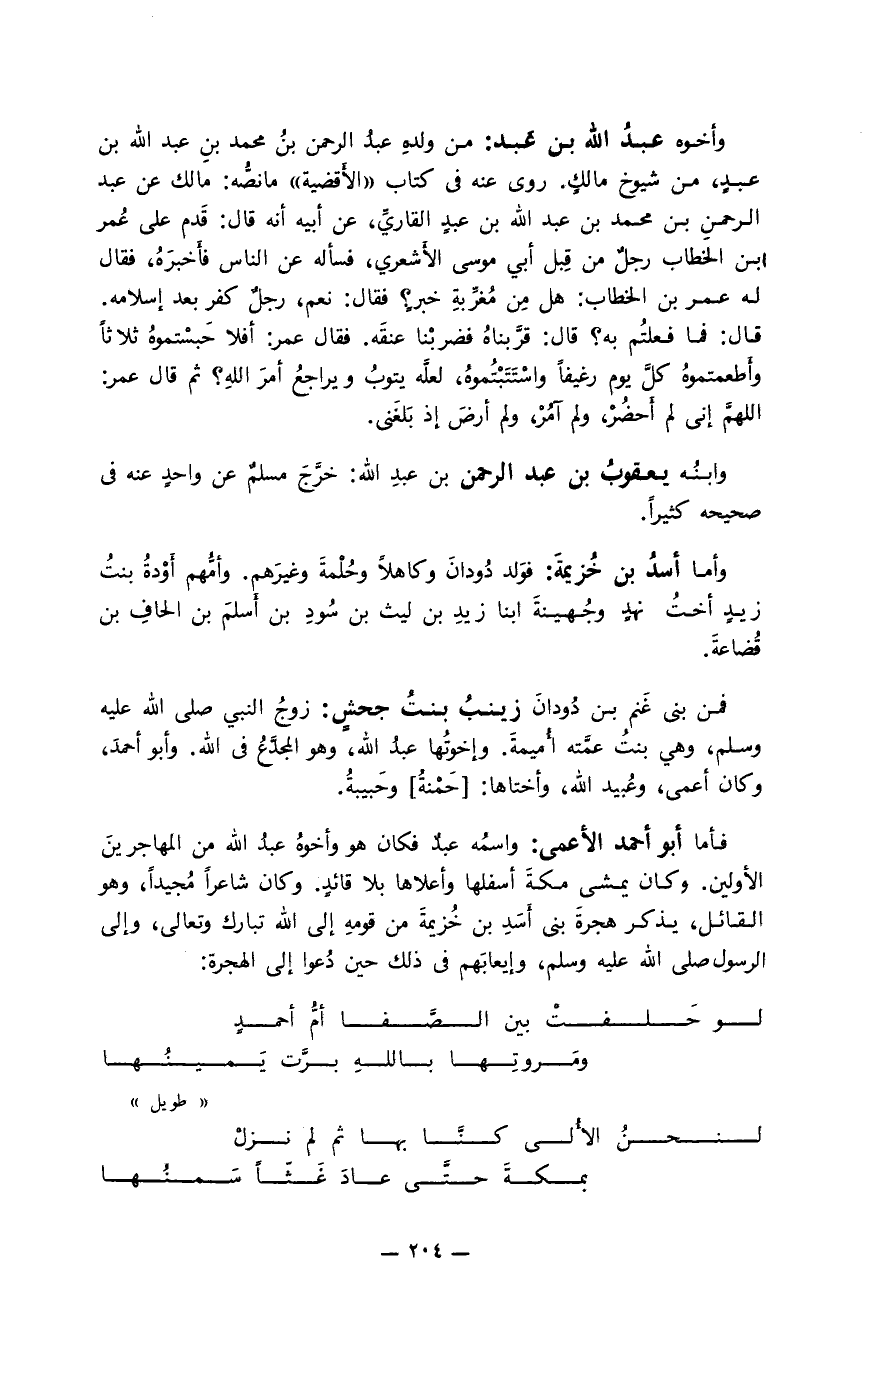 وأخوه عبدُ الله بن عَبد: من ولدهِ عبدُ الرحمن بنُ محمد بنِ عبد الله بن
عبدٍ، من شيوخ مالكٍ. روى عنه فى كتاب «الأقضية» مانصُّه: مالك عن عبد
الرحمنِ بن محمد بن عبد الله بن عبدٍ القاريِّ، عن أبيه أنه قال: قَدم على عُمر
ابن الخطاب رجلٌ من قِبل أبي موسى الأشعري، فسأله عن الناس فأخبرَهُ، فقال
له عمر بن الخطاب: هل مِن مُغَرِّبةِ خبرٍ؟ فقال: نعم، رجلٌ كفر بعد إسلامه.
قال: فما فعلتُم به؟ قال: قرَّبناهُ فضربْنا عنقَه. فقال عمر: أفلا حَبسْتموهُ ثلاثاً
وأطعمتموهُ كلَّ يوم رغيفاً واسْتَتَبْتُموهُ، لعلَّه يتوبُ ويراجعُ أمرَ اللهِ؟ ثم قال عمر:
اللهمَّ إنى لم أَحضُرْ، ولم آمُرْ، ولم أرضَ إذ بَلغَنى.
وابنُه يعقوبُ بن عبد الرحمن بن عبدِ الله: خرَّجَ مسلمٌ عن واحدٍ عنه فى
صحيحه كثيراً.
وأما أسدُ بن خُزيمةَ: فوَلد دُودانَ وكاهلاً وحُلْمةَ وغيرَهم. وأمُّهم أَوْدةُ بنتُ
زيدٍ أختُ نهدٍ وجُهينةَ ابنا زيدِ بن ليث بن سُودِ بن أسلمَ بن الحافِ بن
قُضاعةَ.
فمن بنى غَنم بن دُودانَ زينبُ بنتُ جحشٍ: زوجُ النبي صلى الله عليه
وسلم، وهي بنتُ عمَّته أُميمةَ. وإخوتُها عبدُ الله، وهو المجدَّعُ فى الله. وأبو أحمدَ،
وكان أعمى، وعُبيد الله، وأختاها: [حَمْنةُ] وحَبيبةُ.
فأما أبو أحمد الأعمى: واسمُه عبدٌ فكان هو وأخوهُ عبدُ الله من المهاجرينَ
الأولين. وكان يمشى مكةَ أسفلها وأعلاها بلا قائدٍ. وكان شاعراً مُجيداً، وهو
القائل، يذكر هجرةَ بنى أَسَدِ بن خُزيمةَ من قومهِ إلى الله تبارك وتعالى، وإلى
الرسول صلى الله عليه وسلم، وإيعابَهم فى ذلك حين دُعوا إلى الهجرة:
لو حَلفتْ بين الصَّفا أمُّ أحمدٍ
ومَروتِها باللهِ برَّت يَمينُها
« طويل »
لنحنُ الأُلى كنَّا بها ثم لم نزلْ
بمكةَ حتَّى عادَ غَثّاً سَمنُها
— ٢٠٤ —